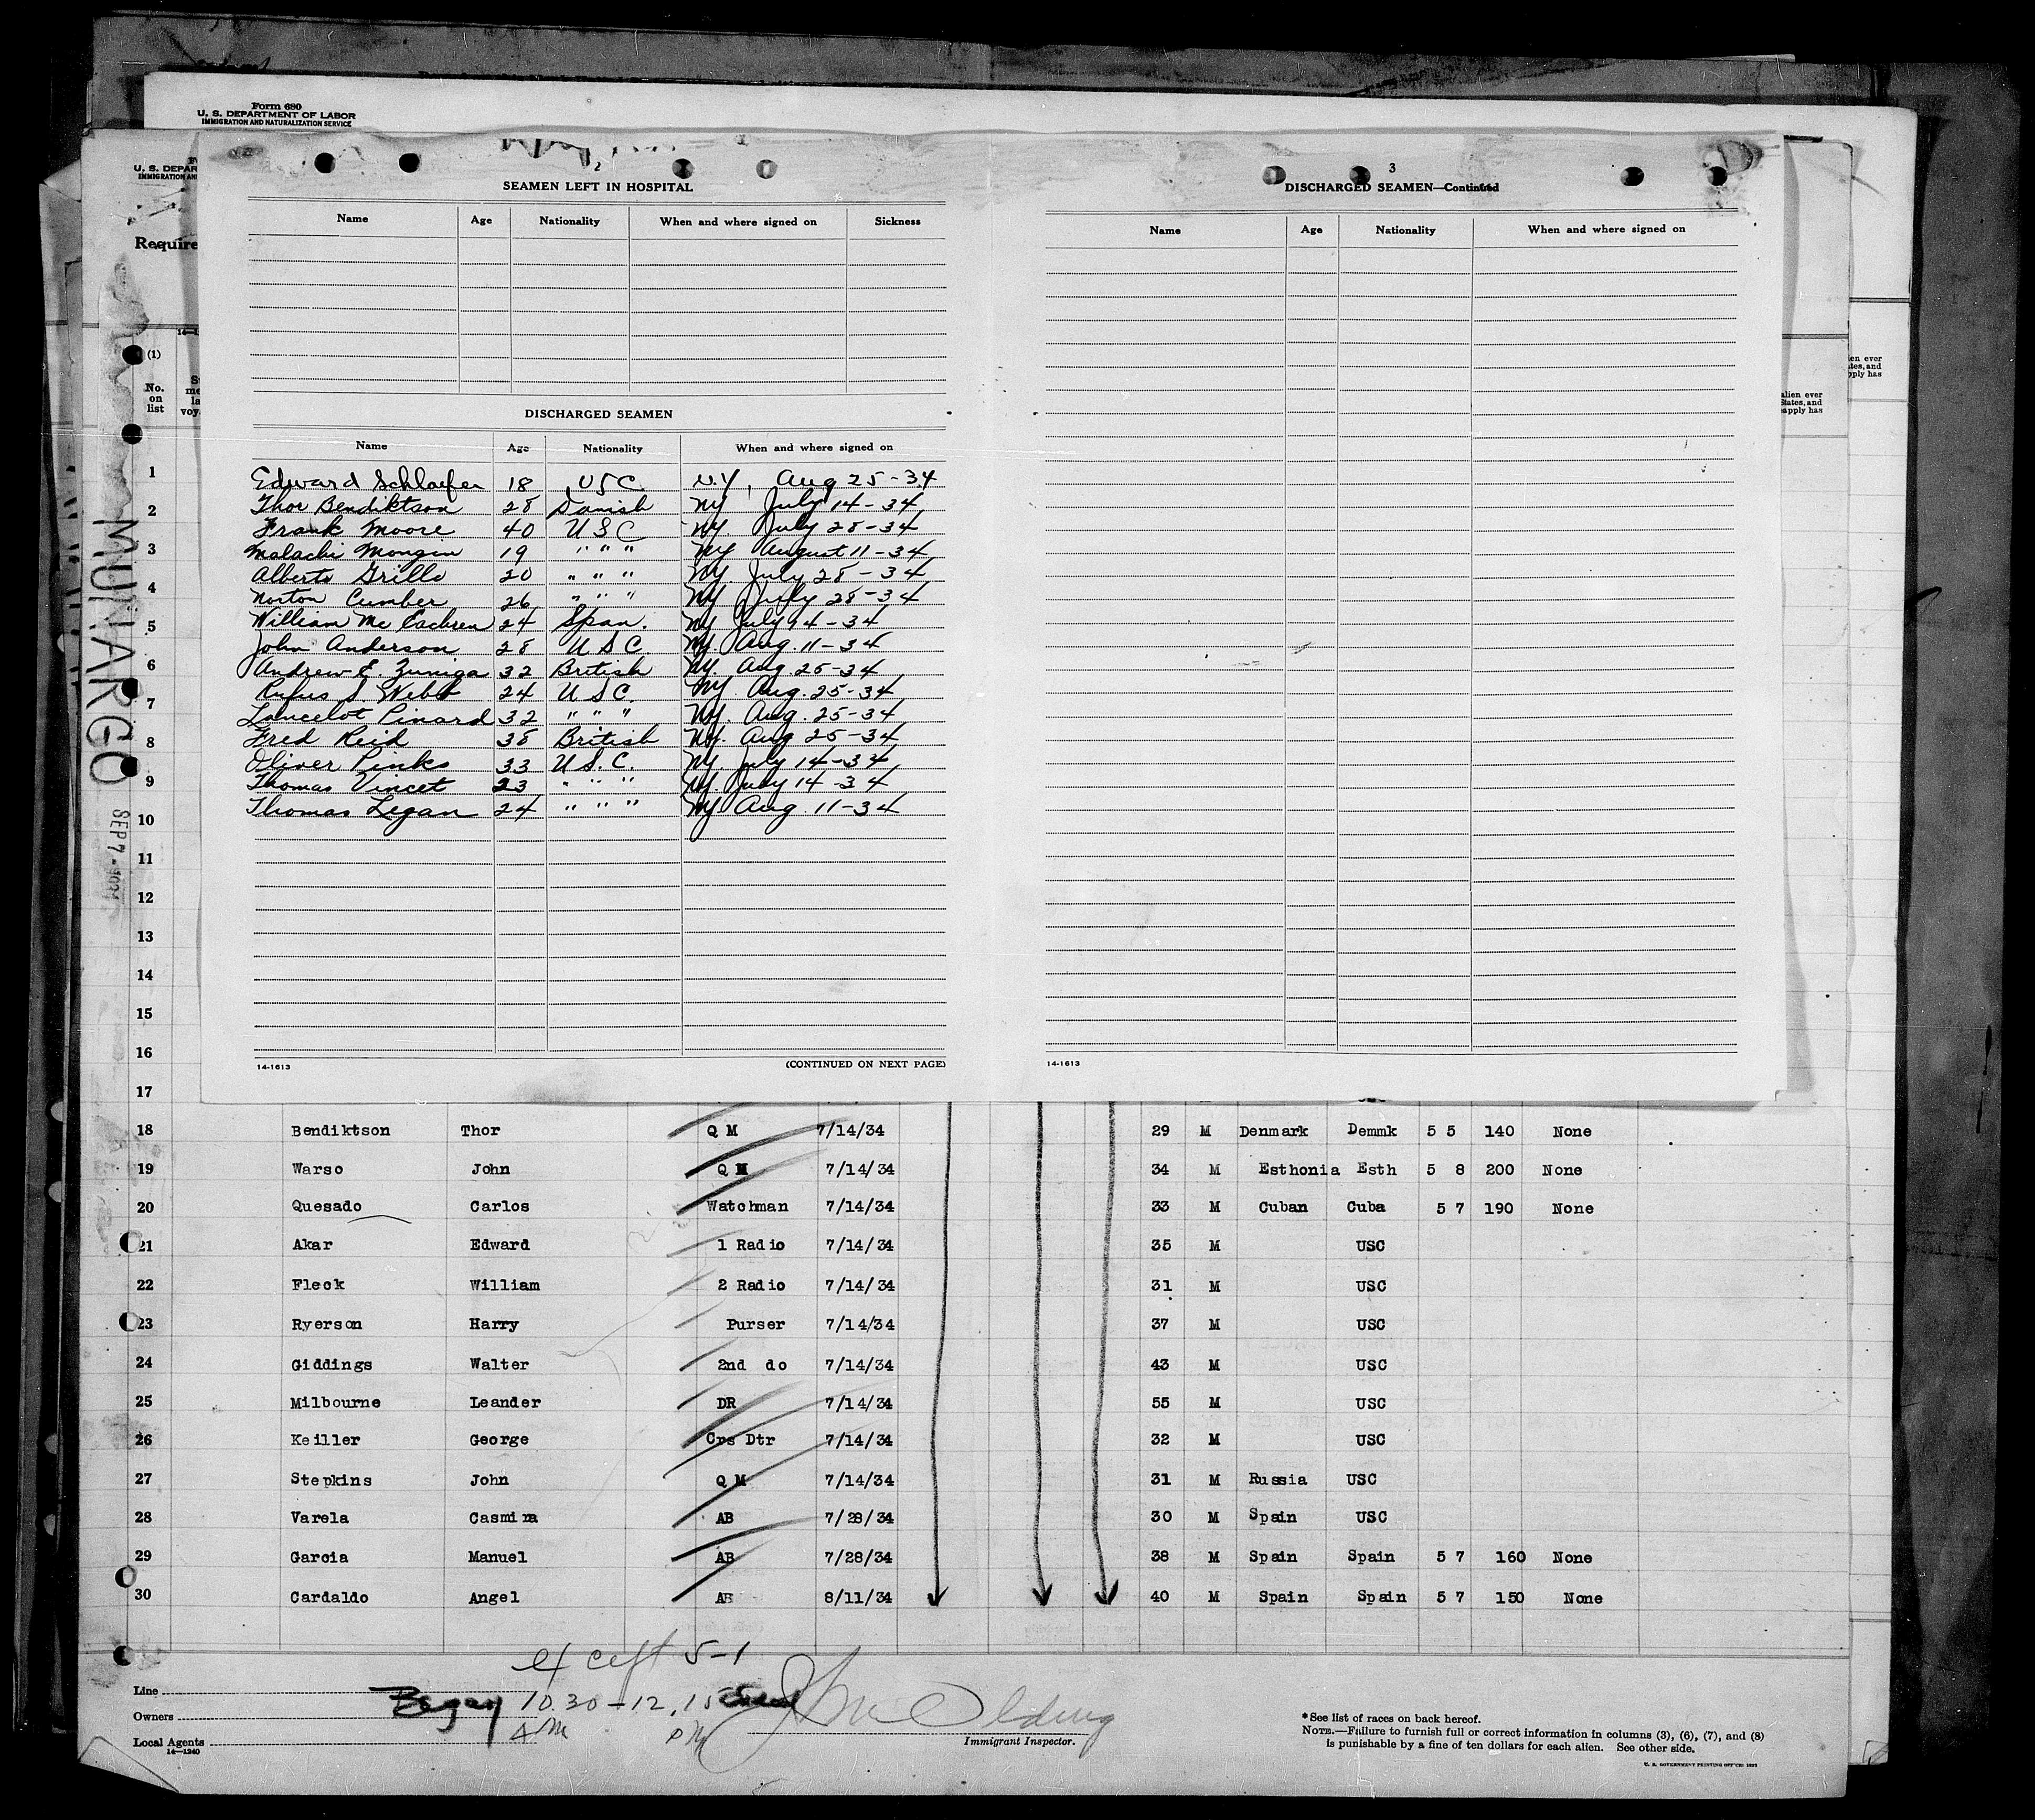 Form 680
U. S. DEPARTMENT OF LABOR
IMMIGRATION AND NATURALIZATION SERVICE
U. S. DEPAR
IMMIGRATION AN
Require
(1)
No. on list
MUNARGO
SEP 7 -
2
SEAMEN LEFT IN HOSPITAL
Name Age Nationality When and where signed on Sickness
DISCHARGED SEAMEN
Name Age Nationality When and where signed on
Edward Schlaefer 18 USC. N.Y., Aug 25-34
Thor Bendiktson 28 Danish NY July 14-34
Frank Moore 40 USC NY. July 28-34
Malachi Mongin 19 " " " NY August 11-34
Alberto Grillo 20 " " " NY. July 28-34
Norton Cumber 26 " " " NY July 28-34
William McEachren 24 Span. NY July 14-34
John Anderson 28 USC NY. Aug. 11-34
Andrew E. Zuniga 32 British NY. Aug. 25-34
Rufus S Webb 24 USC. NY Aug. 25-34
Lancelot Pinard 32 " " " NY. Aug. 25-34
Fred Reid 38 British NY. Aug 25-34
Oliver Pinks 33 U.S.C. NY. July 14-34
Thomas Vincet 23 " " " NY. July 14-34
Thomas Legan 24 " " " NY Aug. 11-34
14-1613
(CONTINUED ON NEXT PAGE)
3
DISCHARGED SEAMEN—Continued
Name Age Nationality When and where signed on
14-1613
alien ever
States, and
apply has
1
2
3
4
5
6
7
8
9
10
11
12
13
14
15
16
17
18 Bendiktson Thor Q M 7/14/34 29 M Denmark Demmk 5 5 140 None
19 Warso John Q M 7/14/34 34 M Esthonia Esth 5 8 200 None
20 Quesado Carlos Watchman 7/14/34 33 M Cuban Cuba 5 7 190 None
21 Akar Edward 1 Radio 7/14/34 35 M USC
22 Fleck William 2 Radio 7/14/34 31 M USC
23 Ryerson Harry Purser 7/14/34 37 M USC
24 Giddings Walter 2nd do 7/14/34 43 M USC
25 Milbourne Leander DR 7/14/34 55 M USC
26 Keiller George Crs Dtr 7/14/34 32 M USC
27 Stepkins John Q M 7/14/34 31 M Russia USC
28 Varela Casmira AB 7/28/34 30 M Spain USC
29 Garcia Manuel AB 7/28/34 38 M Spain Spain 5 7 160 None
30 Cardaldo Angel AB 8/11/34 40 M Spain Spain 5 7 150 None
except 5-1
Line
Began 10.30 - 12.15
Owners
AM PM
Local Agents
14—1240
Immigrant Inspector.
*See list of races on back hereof.
NOTE.—Failure to furnish full or correct information in columns (3), (6), (7), and (8)
is punishable by a fine of ten dollars for each alien. See other side.